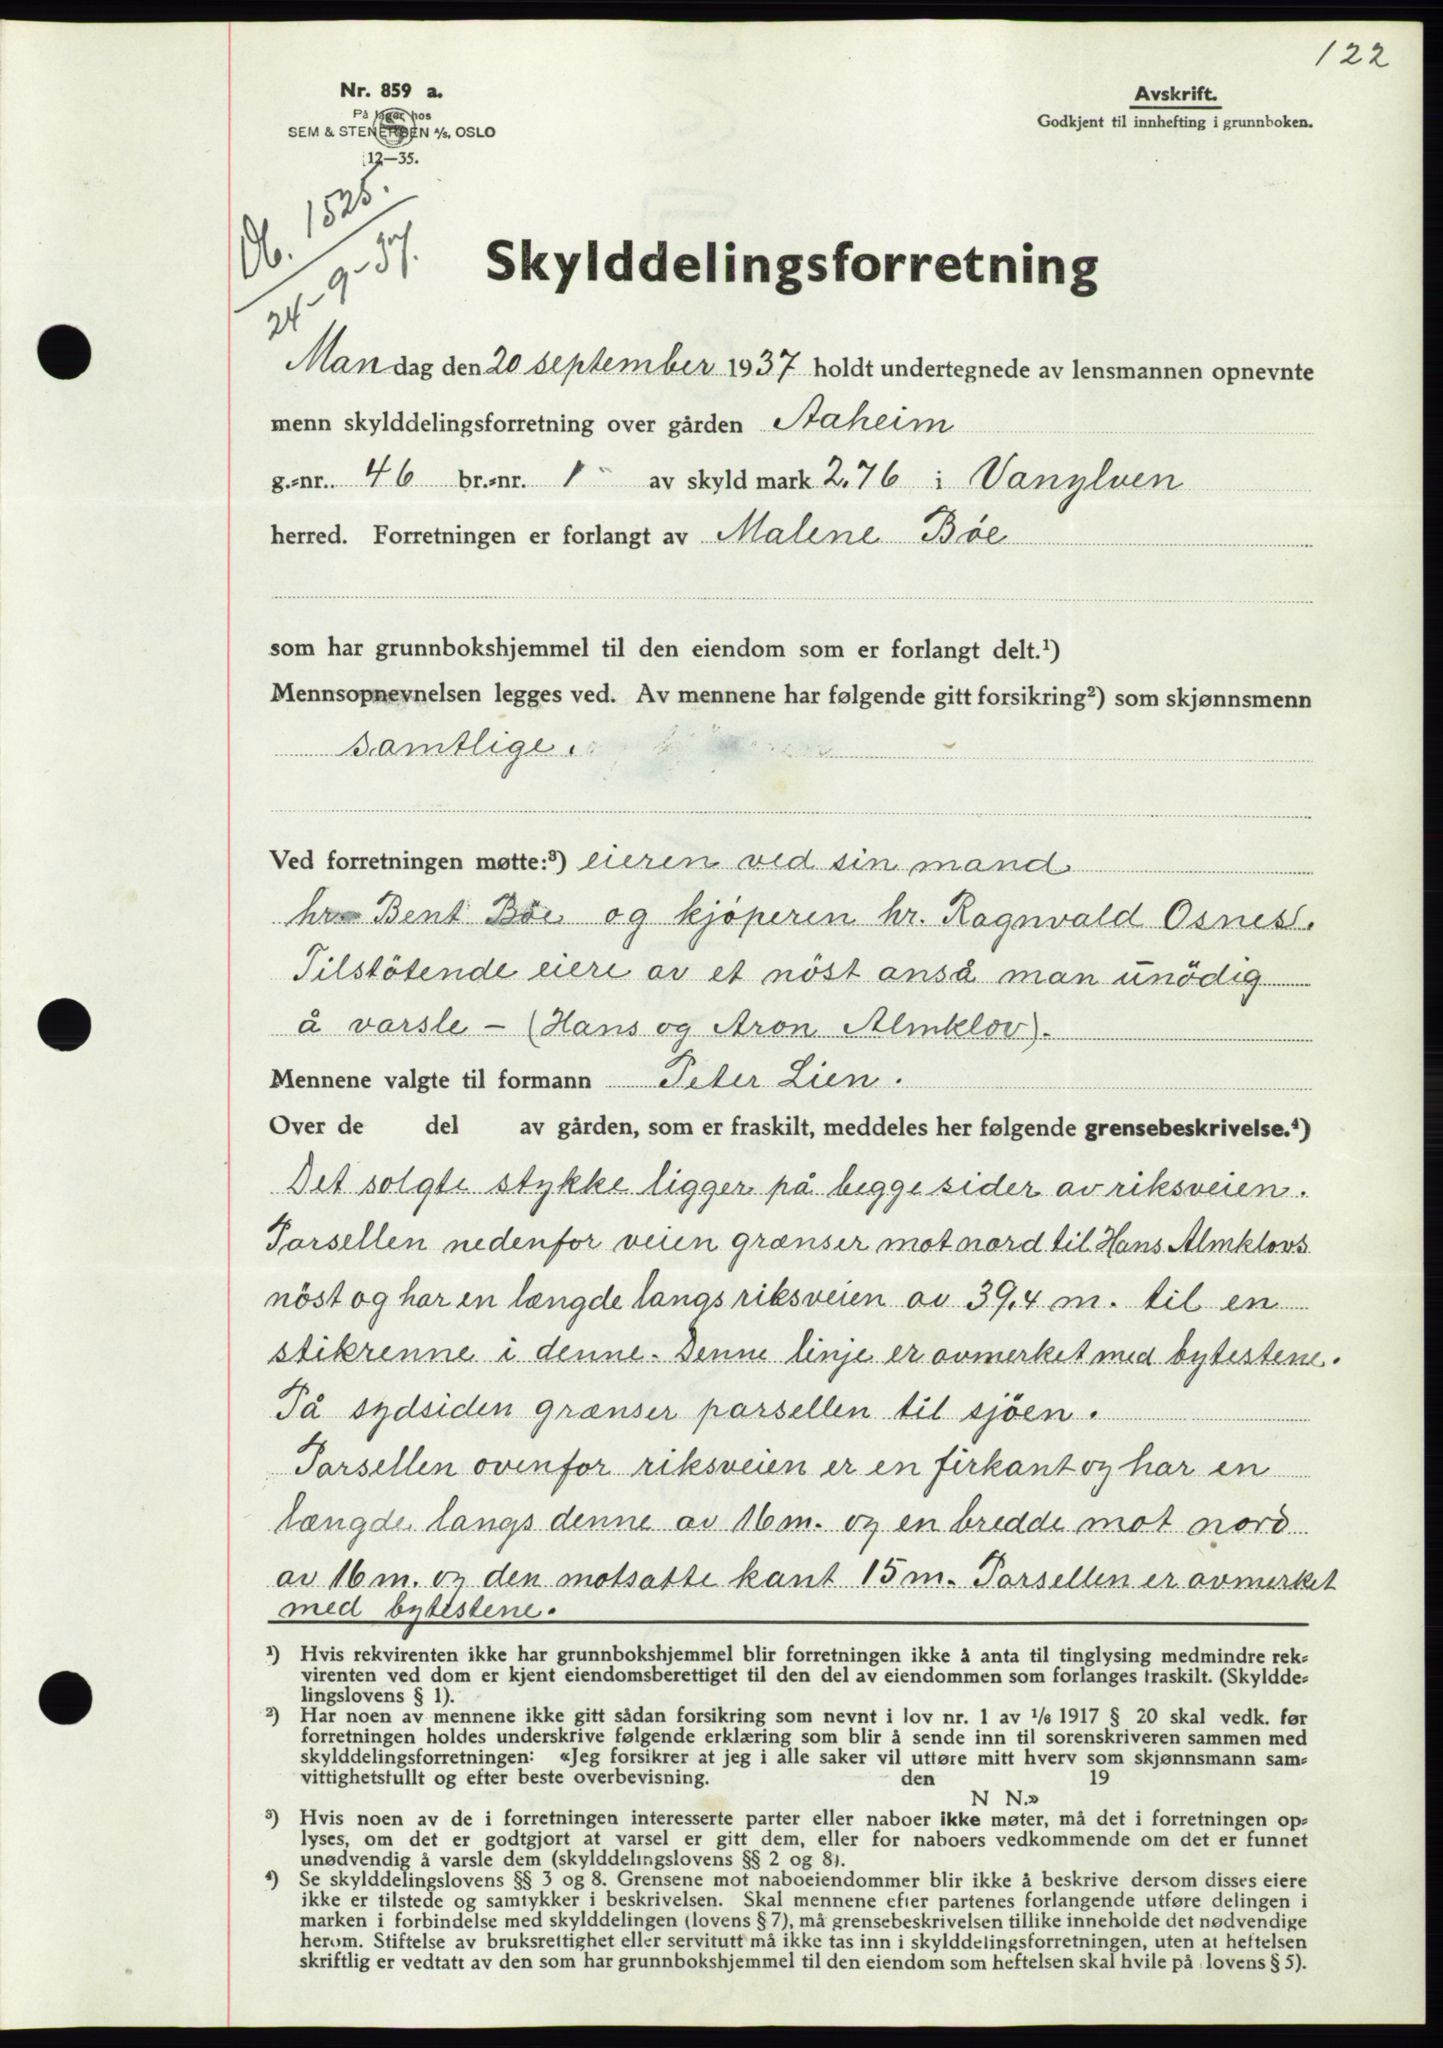 122
Nr. 859 a.
På lager hos
SEM & STENERSEN A/S, OSLO
12—35.
Avskrift.
Godkjent til innhefting i grunnboken.
Db. 1525.
24-9-37.
Skylddelingsforretning
Mandag den 20 september 1937 holdt undertegnede av lensmannen opnevnte
menn skylddelingsforretning over gården Aaheim
g.-nr. 46 br.-nr. 1 av skyld mark 2.76 i Vanylven
herred. Forretningen er forlangt av Malene Bøe
som har grunnbokshjemmel til den eiendom som er forlangt delt.¹)
Mennsopnevnelsen legges ved. Av mennene har følgende gitt forsikring²) som skjønnsmenn
samtlige.
Ved forretningen møtte:³) eieren ved sin mand
hr. Bent Böe og kjöperen hr. Ragnvald Osnes.
Tilstötende eiere av et nöst anså man unödig
å varsle - (Hans og Aron Almklov).
Mennene valgte til formann Peter Lien.
Over de del av gården, som er fraskilt, meddeles her følgende grensebeskrivelse.⁴)
Det solgte stykke ligger på begge sider av riksveien.
Parsellen nedenfor veien grænser mot nord til Hans Almklovs
nöst og har en længde langs riksveien av 39.4 m. til en
stikrenne i denne. Denne linje er avmerket med bytestene.
På sydsiden grænser parsellen til sjöen.
Parsellen ovenfor riksveien er en firkant og har en
længde langs denne av 16 m. og en bredde mot nord
av 16 m. og den motsatte kant 15 m. Parsellen er avmerket
med bytestene.
¹) Hvis rekvirenten ikke har grunnbokshjemmel blir forretningen ikke å anta til tinglysing medmindre rek-
virenten ved dom er kjent eiendomsberettiget til den del av eiendommen som forlanges fraskilt. (Skyldde-
lingslovens § 1).
²) Har noen av mennene ikke gitt sådan forsikring som nevnt i lov nr. 1 av 1/6 1917 § 20 skal vedk. før
forretningen holdes underskrive følgende erklæring som blir å sende inn til sorenskriveren sammen med
skylddelingsforretningen: «Jeg forsikrer at jeg i alle saker vil utføre mitt hverv som skjønnsmann sam-
vittighetsfullt og efter beste overbevisning. den 19
N N.»
³) Hvis noen av de i forretningen interesserte parter eller naboer ikke møter, må det i forretningen op-
lyses, om det er godtgjort at varsel er gitt dem, eller for naboers vedkommende om det er funnet
unødvendig å varsle dem (skylddelingslovens §§ 2 og 8).
⁴) Se skylddelingslovens §§ 3 og 8. Grensene mot naboeiendommer blir ikke å beskrive dersom disses eiere
ikke er tilstede og samtykker i beskrivelsen. Skal mennene efter partenes forlangende utføre delingen i
marken i forbindelse med skylddelingen (lovens § 7), må grensebeskrivelsen tillike inneholde det nødvendige
herom. Stiftelse av bruksrettighet eller servitutt må ikke tas inn i skylddelingsforretningen, uten at heftelsen
skriftlig er vedtatt av den som har grunnbokshjemmel til den eiendom som heftelsen skal hvile på (lovens § 5).